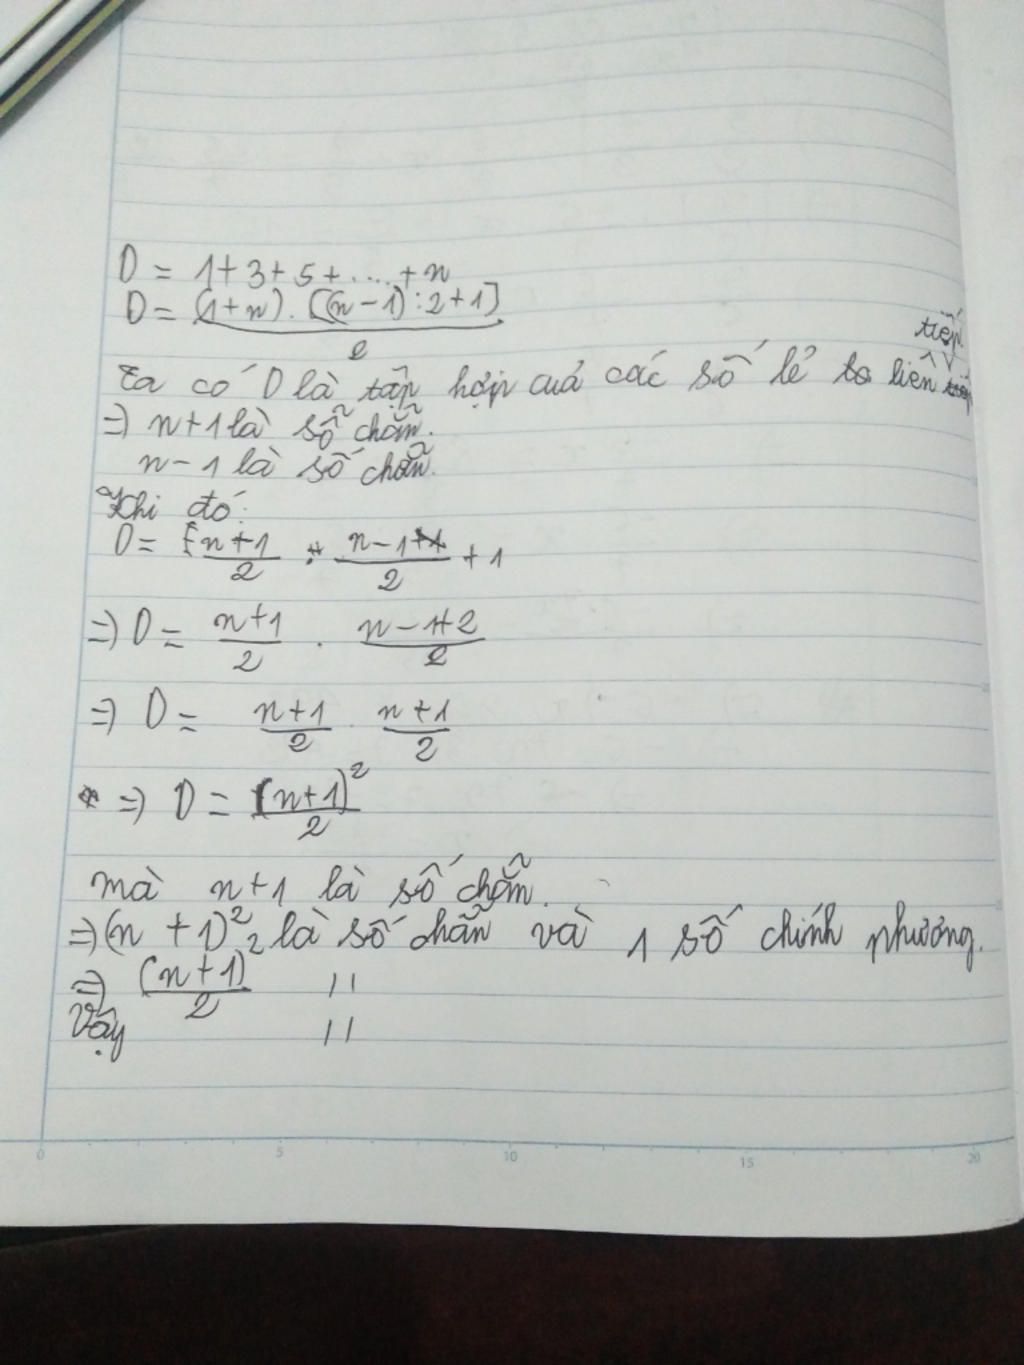 D = 1 + 3 + 5 + .... + n
D = (1+n) . [(n - 1) : 2 + 1]
2
tiếp
Ta có D là tập hợp cuả các số lẻ liên
=) n+1 là số chẵn.
n - 1 là số chẵn.
Khi đó:
D = n + 1 / 2 . n - 1 / 2 + 1
=) D = n+1 / 2 . n - 1 + 2 / 2
=) D = n + 1 / 2 . n + 1 / 2
* =) D = (n+1)² / 2
mà n+1 là số chẵn.
=) (n + 1)² là số chẵn và 1 số chính phương.
=) (n + 1)² / 2 //
Vậy //
0 5 10 15 20